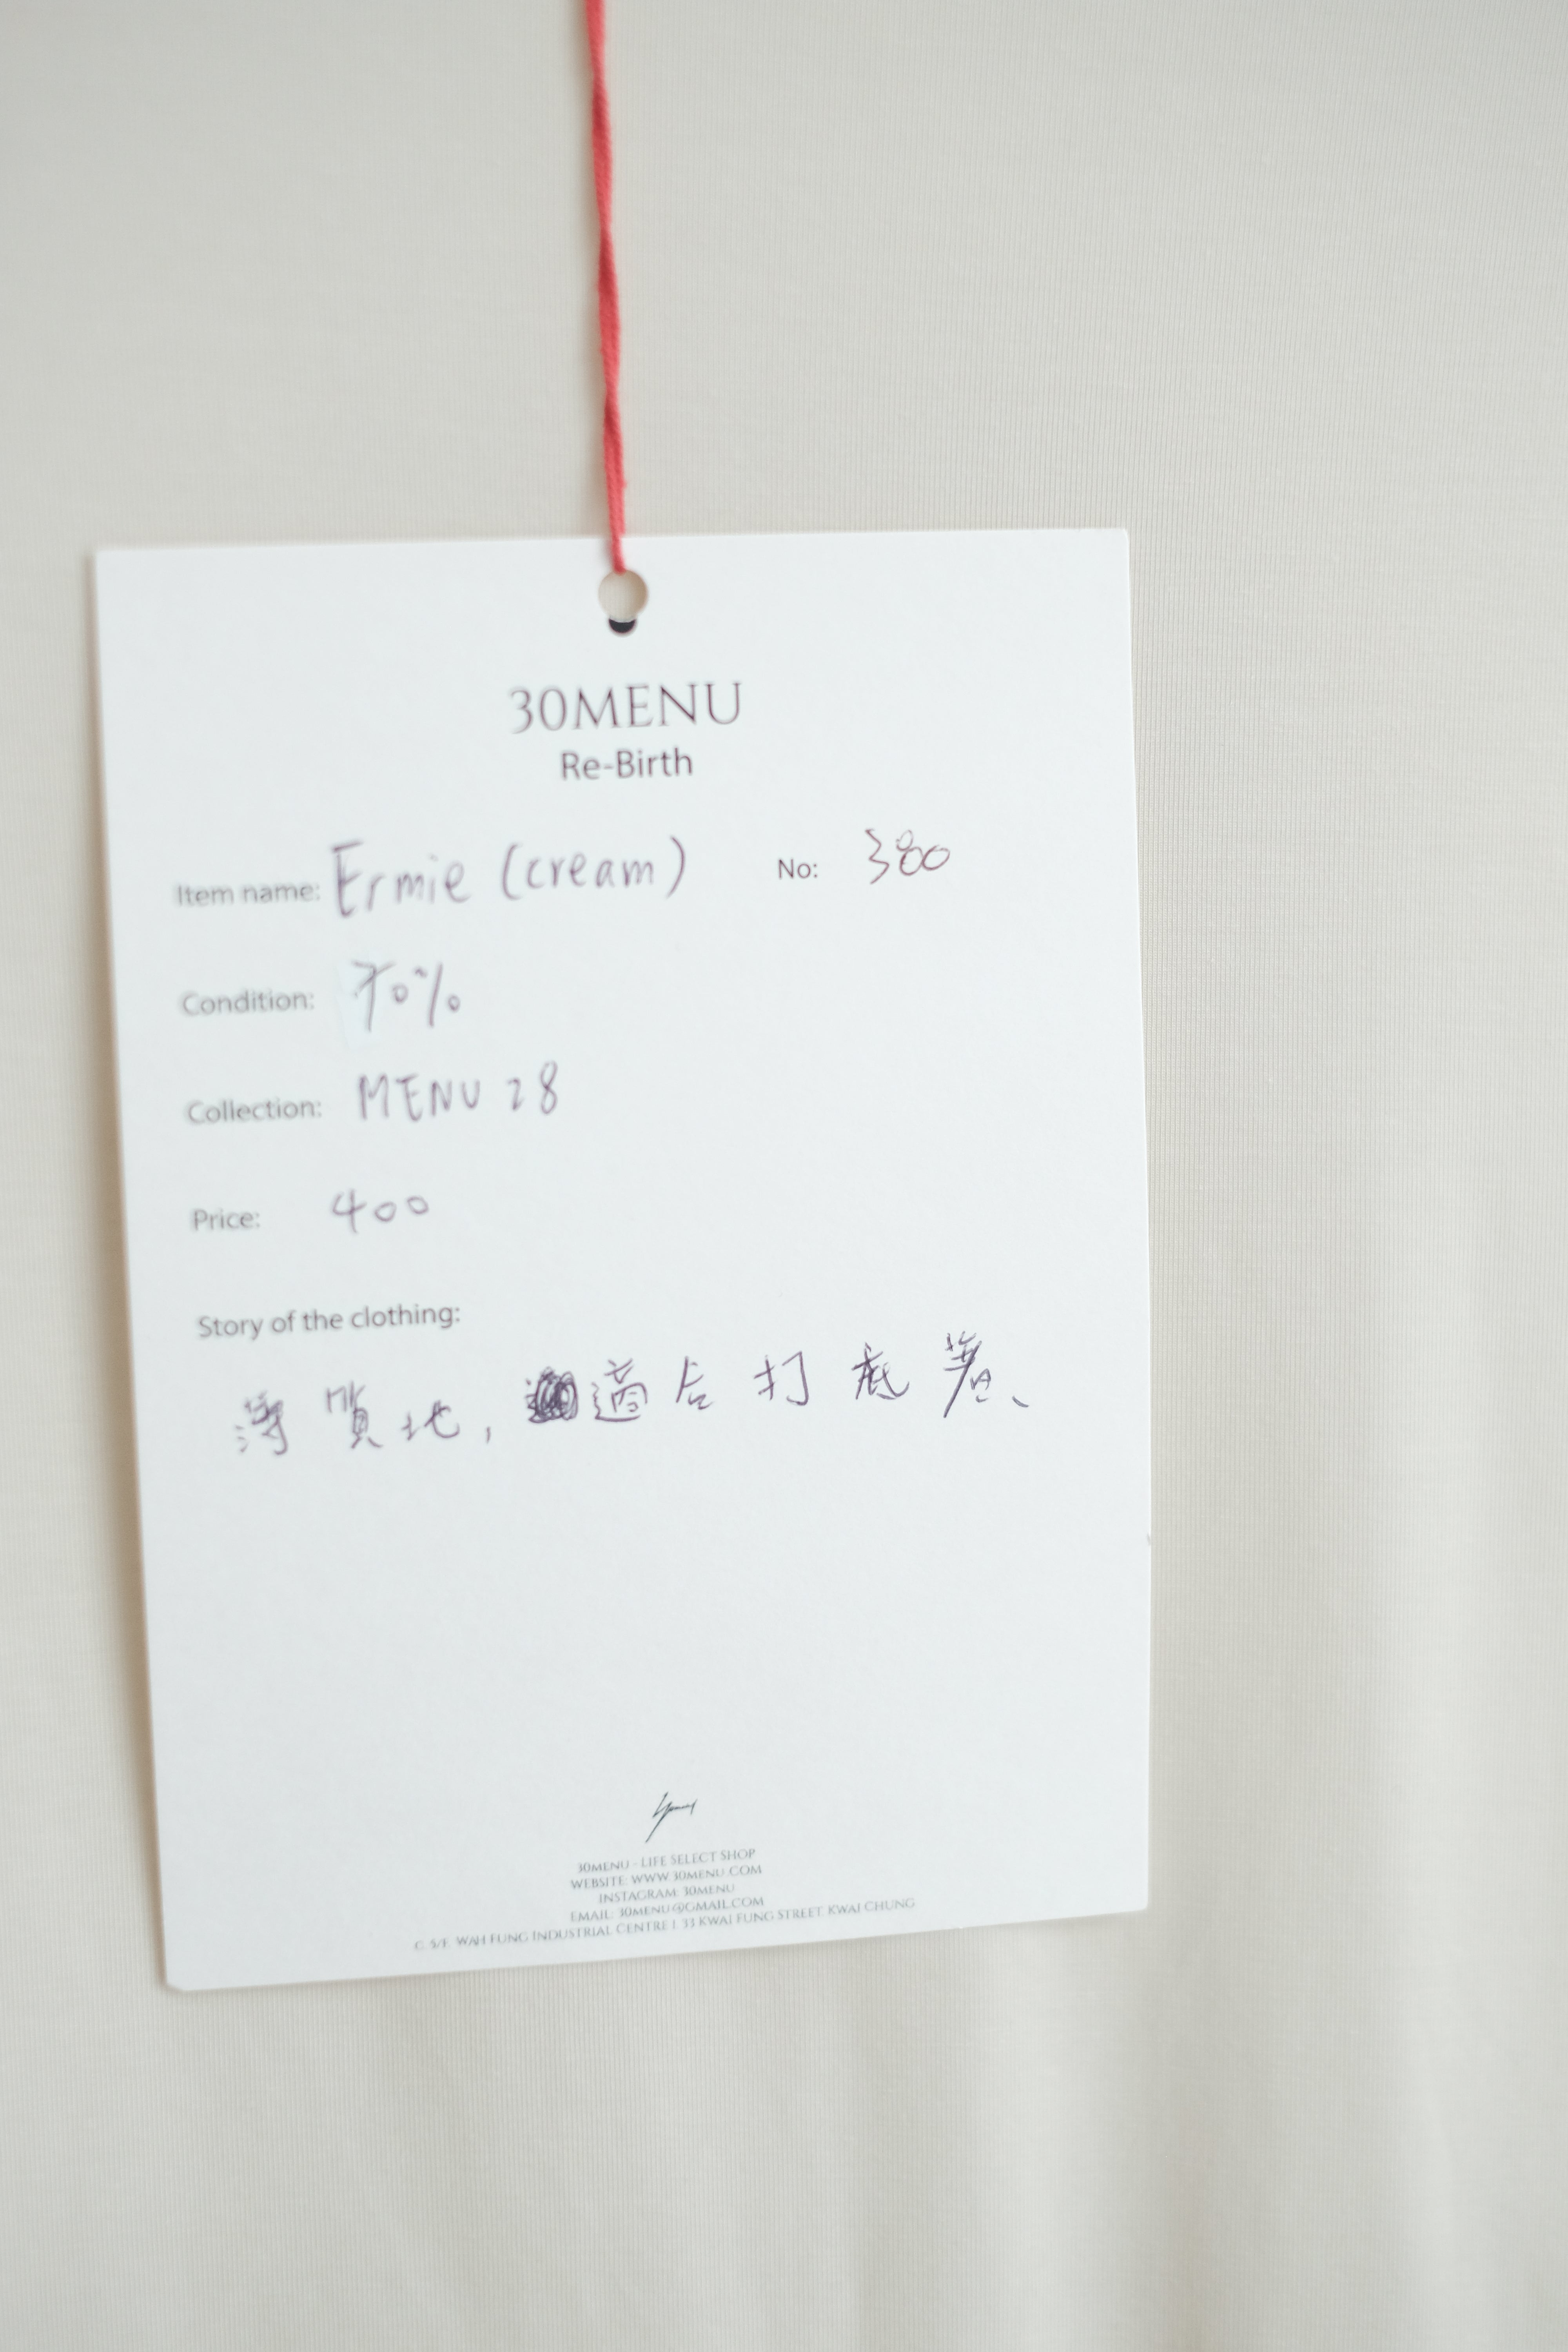 30MENU
Re-Birth
Item name: Ermie (cream) No: 380
Condition: 70%
Collection: MENU 28
Price: 400
Story of the clothing:
薄質地，適合打底著、
30MENU - LIFE SELECT SHOP
WEBSITE: WWW.30MENU.COM
INSTAGRAM: 30MENU
EMAIL: 30MENU@GMAIL.COM
C, 5/F, WAH FUNG INDUSTRIAL CENTRE I, 33 KWAI FUNG STREET, KWAI CHUNG